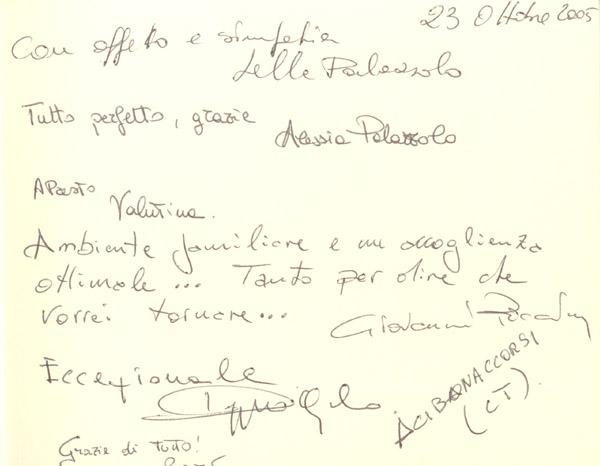 23 Ottobre 2005
Con affetto e simpatia
Lella Palazzolo
Tutto perfetto, grazie
Alessia Palazzolo
Valentina.
Ambiente familiare e un accoglienza
ottimale... Tanto per dire che
vorrei tornare...
Giovanni
Eccezionale
ACIBONACCORSI
(CT).
Grazie di tutto!